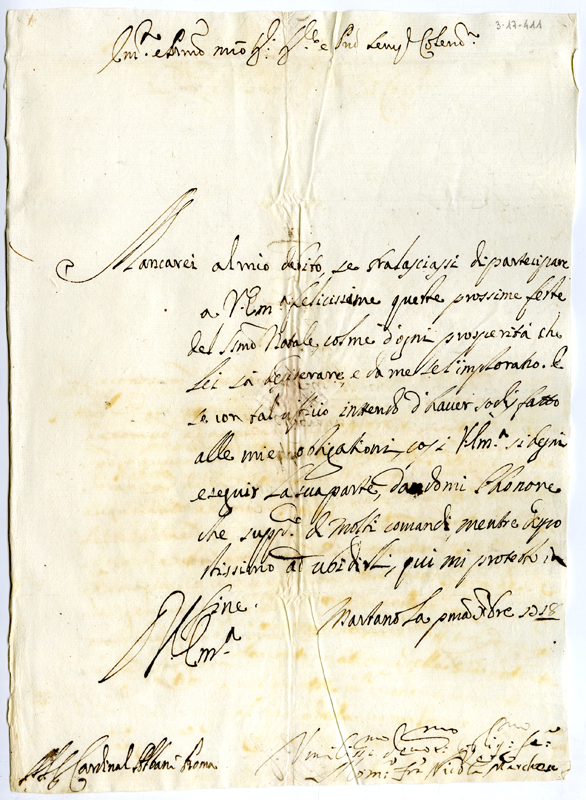 3-17-444
Em.º e Rmo mio Sig.r Sig.re e Pné Semp.e Colend.º
Mancarei al mio debito, se tralasciassi di partecipare
a V. Em.ª felicissime queste prossime feste
del Ssmo Natale, colme d'ogni prosperità che
Lei sà desiderare, e da me Le s'implorano. E
se con tal ufficio intendo d'haver sodisfatto
alle mie obligationi, così V. Em.ª si degni
eseguir la sua parte, dandomi l'honore
che supp.co di molti comandi mentre dispo
stissimo ad ubidirla, qui mi protesto in
fine. Martano la pma Xbre 1718
D. V. Em.ª
Sig.r Cardinal Albani Roma
Umiliss.mo Devot.mo Oblig.mo Se.